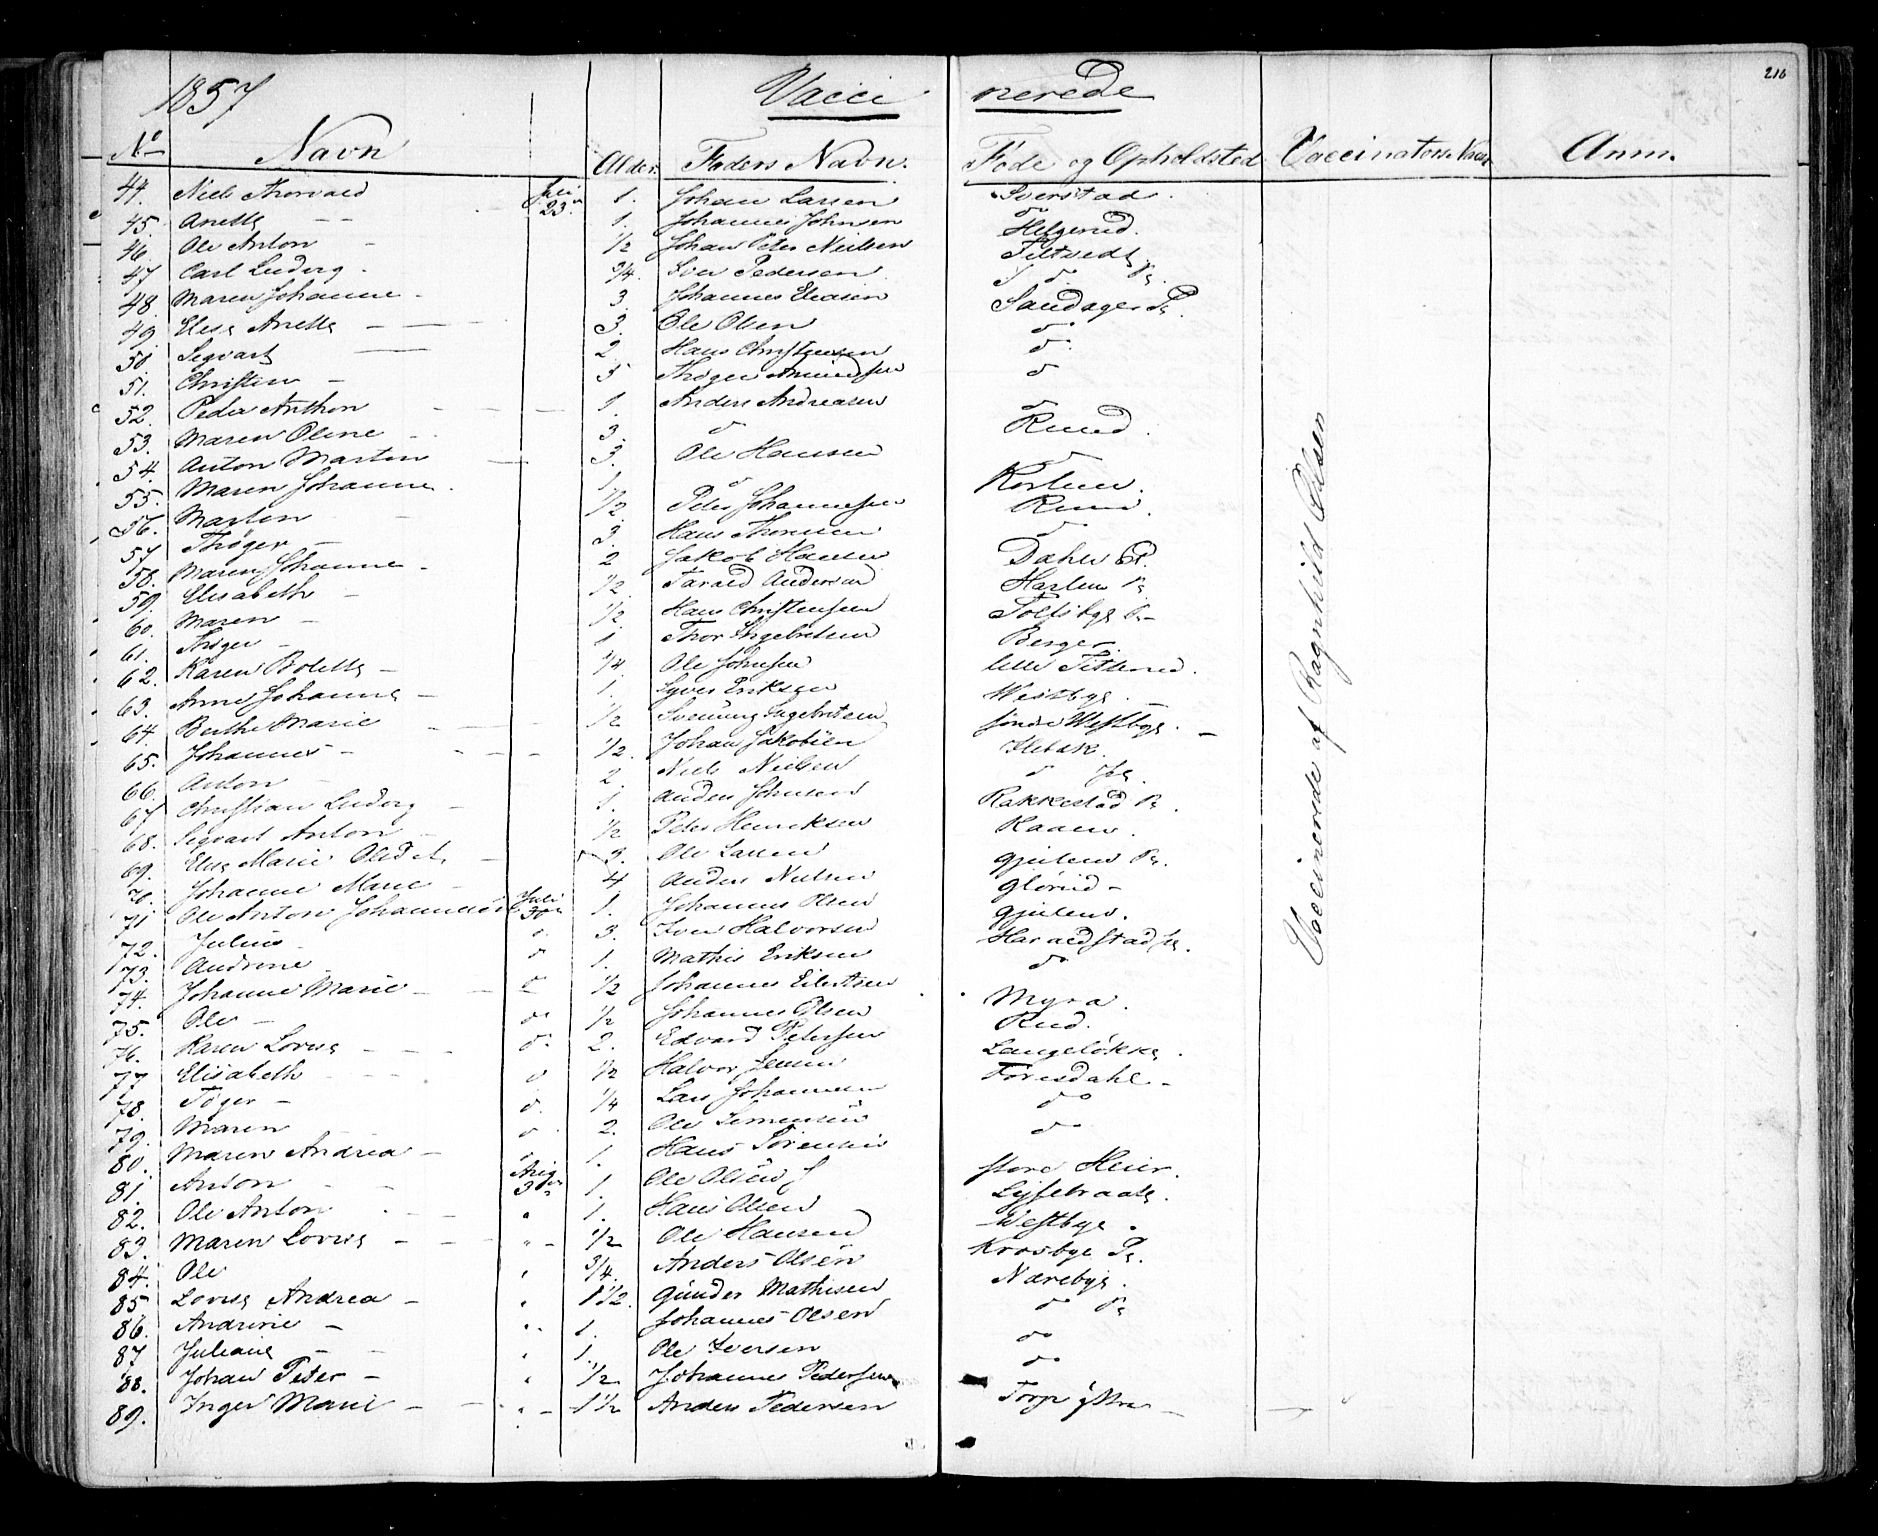 216
1857 Vaccinerede
No Navn Alder. Faders Navn. Føde og Opholdsted Vaccinators Navn Anm.
44. Niels Thorvald Juli 23. 1. Johan Larsen Sverstad
45. Anette 1. Johannes Johnsen do
46. Ole Anton 1/2 Johan Peter Neilsen Helgerud.
47 Carl Ludvig 3/4. Iver Pedersen Tiltvedt
48. Maren Johanne 3. Johannes Eliasen do Pe.
49. Elise Anette 3. Ole Olsen Sandager Pe.
50. Segvart 2. Hans Christensen do
51. Christian 5 Thøger Amundsen do
52. Peder Anthon 1. Anders Andreasen do
53. Maren Oline 3. do do
54. Anton Marton 3. Ole Hansen Ruud.
55. Maren Johanne 1. do do
56. Marten 1/2 Peter Johannesen
57 Thøger 3. Hans Thoresen Ruud.
58. Maren Johanne 2 Jakob Hansen do
59. Elisabeth 1/2. Tarald Andersen Dahle Pl.
60. Maren 1/2. Hans Christensen Harlem Pe
61. Thøger 1 Thor Ingebretsen
62. Karen Bolette 1/4. Ole Johnsen Berger.
63. Anne Johanne 1. Syver Eriksen lille
64. Berthe Marie 1/2 Svenung Ingebretsen Westbye
65. Johannes 1/2. Johan Jakobsen søndre Westbye.
66. Anton 2. Niels Nielsen
67 Christian Ludvig 1. Anders Johnsen do
68. Segvart Anton 1/2 Peter Henriksen Rakkestad Pe.
69. Else Marie 3. Ole Larsen
70. Johanne Marie 4 Anders Nielsen Gjulem Pe.
71 Ole Anton Johannesen Juli 30 1. Johannes Olsen Glørud
72. Julius do 3. Iver Halvorsen Gjulem.
73. Andrine do 1. Mathis Eriksen Haraldstad
74. Johanne Marie do 1/2 Johannes Eilertsen do
75. Ole do 1/2 Johannes Olsen Myra.
76. Karen Lovise do 2. Edvard Petersen Rud.
77 Elisabeth do 1/2 Halvor Jensen Langeløkke.
78. Tøger do 1/4 Lars Johannesen Foresdahl
79. Maren do 2. Ole Simensen do
80. Maren Andrea 1. Hans Sørensen do
81. Anton Aug 3 1. Ole Olsen store Heier.
82. Ole Anton " 1. Hans Olsen Lysebraate.
83. Maren Lovise " 1/2 Ole Hansen Westbye
84. Ole " 3/4. Anders Olsen Krosbye Pe.
85 Lovise Andrea " 1 1/2. Günder Mathisen Narebye.
86. Andrine " 1. Johannes Olsen do Pe
87 Juliane " 1. Ole Iversen do
88. Johan Peter " 1/2 Johannes Pedersen do
89. Inger Marie " 1 1/2 Anders Pedersen Torp
Vaccinerede af Ragnhild Olsen